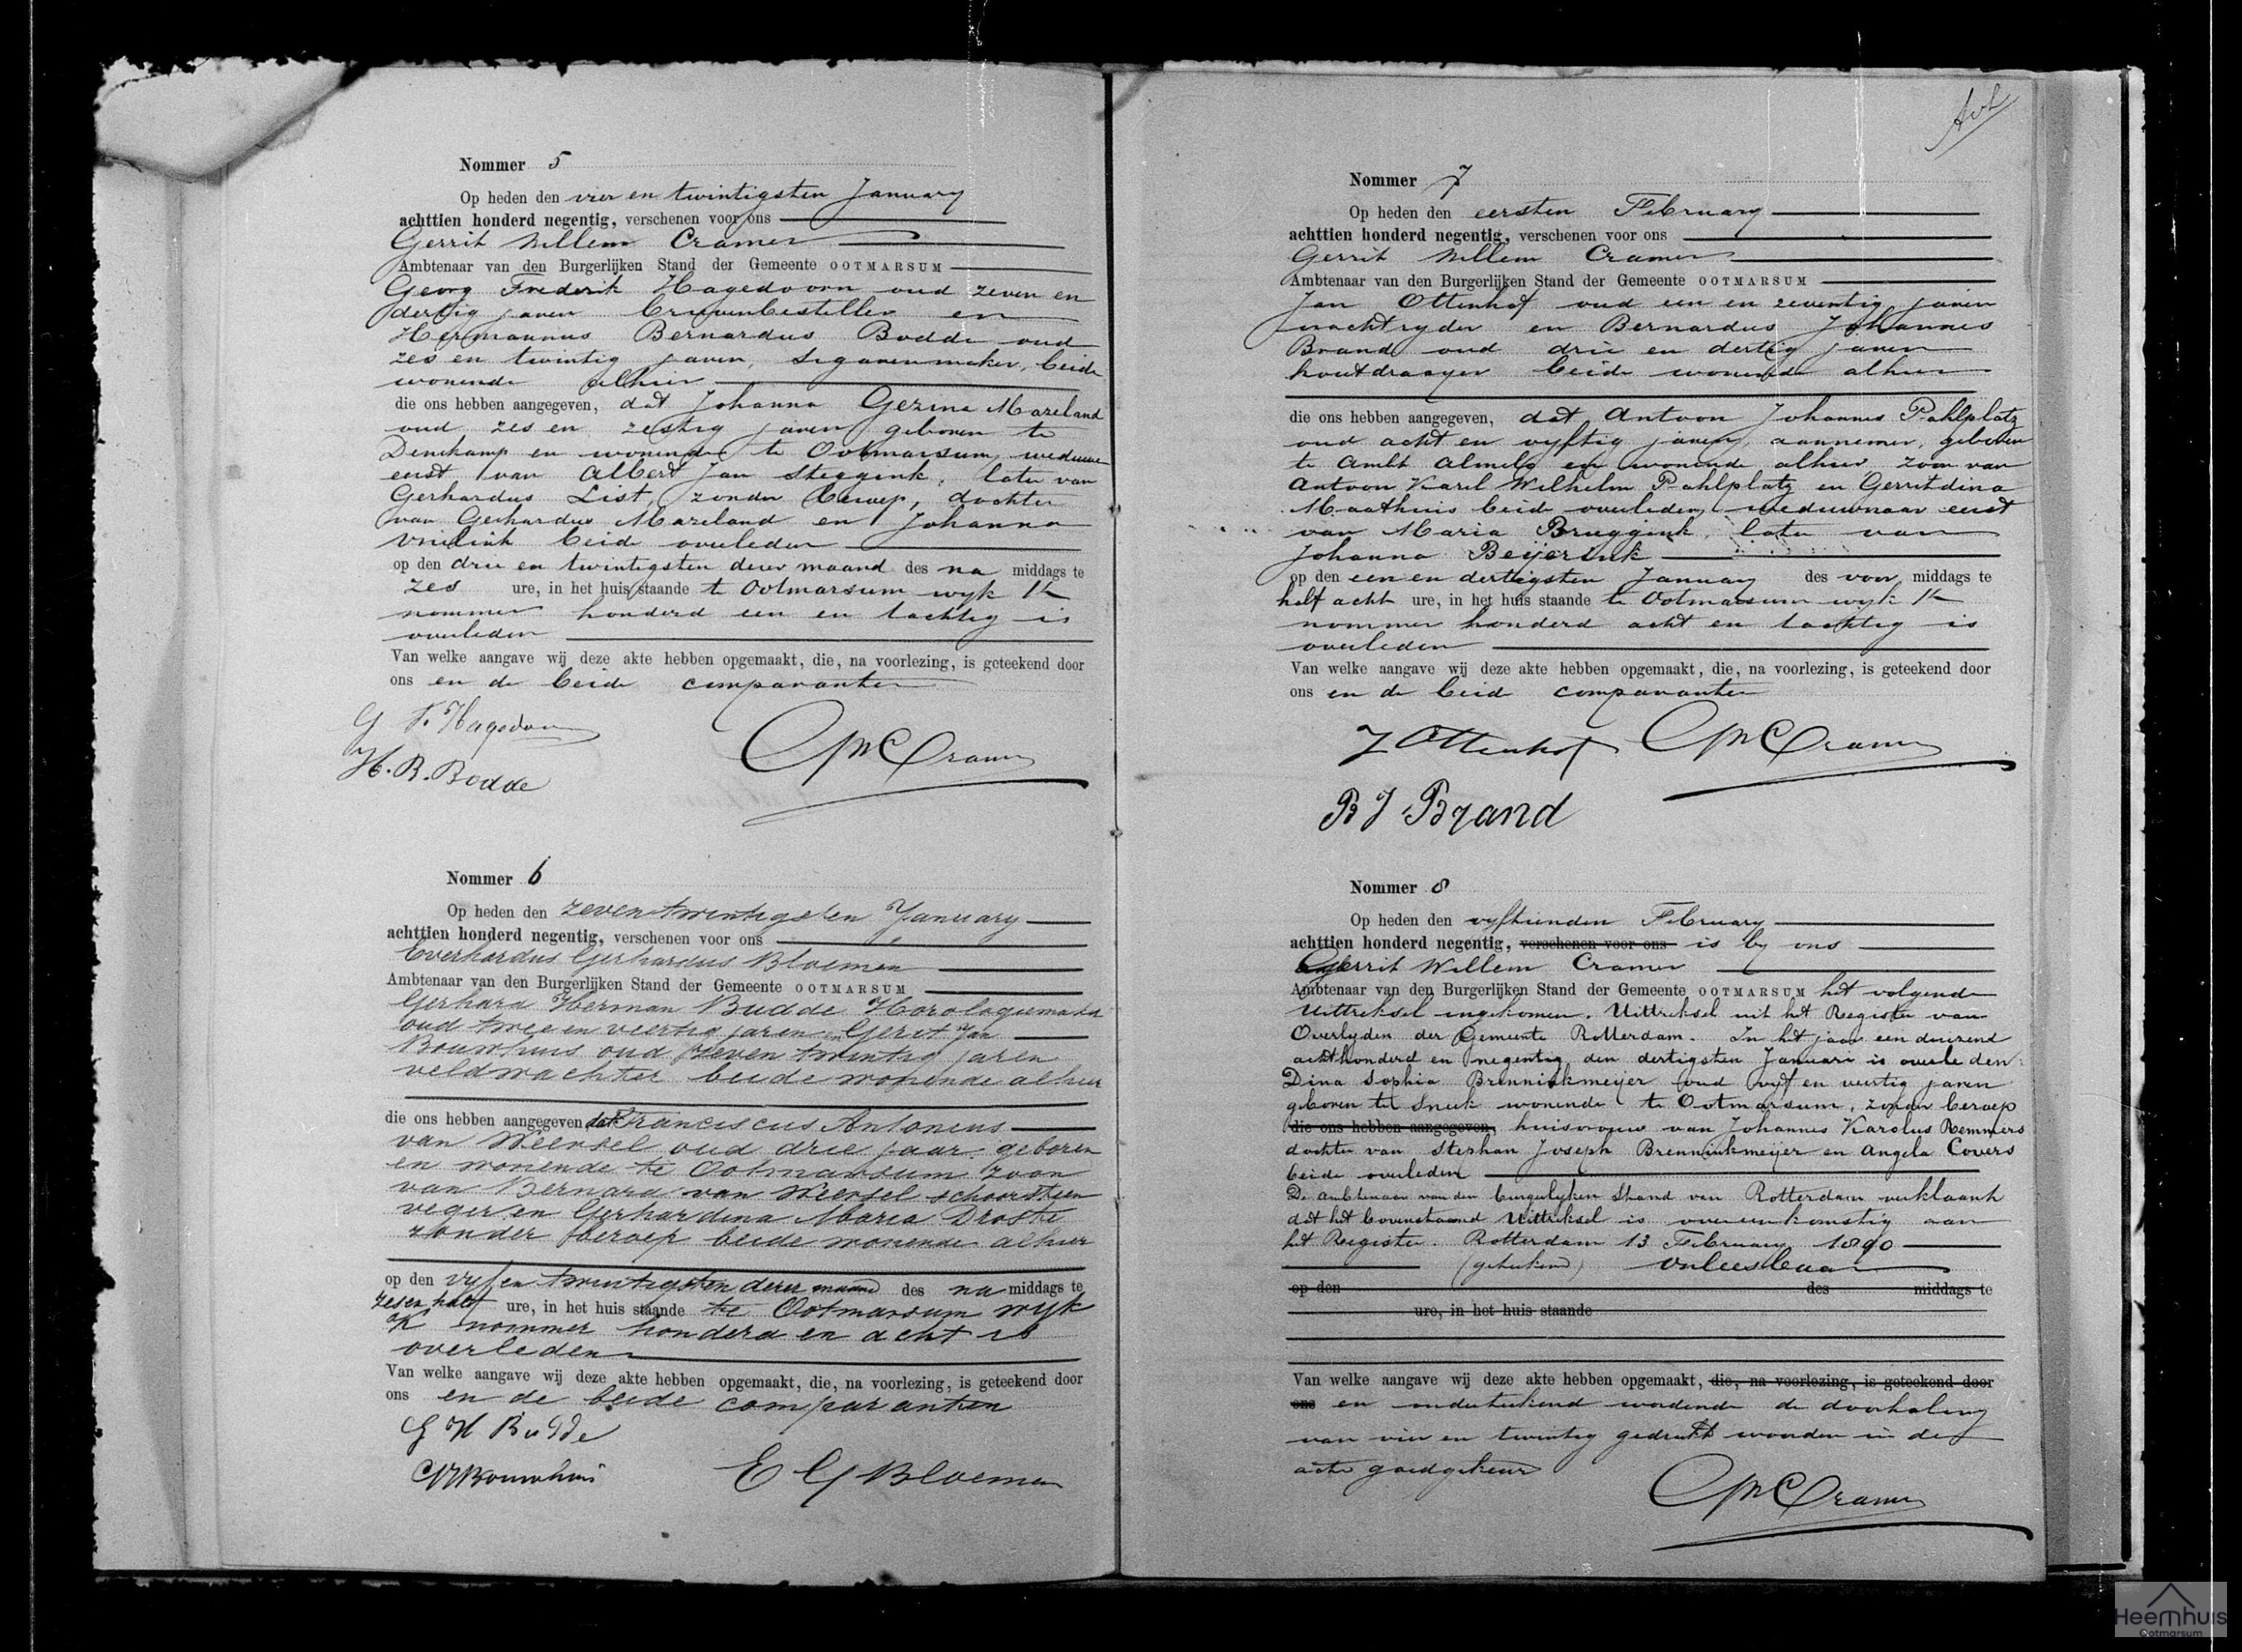 Nommer 5
Op heden den vier en twintigsten January
achttien honderd negentig, verschenen voor ons
Gerrit Willem Cramer
Ambtenaar van den Burgerlijken Stand der Gemeente OOTMARSUM
Georg Frederik Hagedoorn oud zeven en
dertig jaren brievenbesteller en
Hermannus Bernardus Bodde oud
zes en twintig jaren, sigarenmaker, beide
wonende alhier
die ons hebben aangegeven, dat Johanna Gezina Mazeland
oud zes en zestig jaren geboren te
Denekamp en wonende te Ootmarsum, weduwe
eerst van Albert Jan Steggink, later van
Gerhardus List, zonder beroep, dochter
van Gerhardus Mazeland en Johanna
beide overleden
op den drie en twintigsten dezer maand des na middags te
zes ure, in het huis staande te Ootmarsum wyk K
nommer honderd een en tachtig is
overleden
Van welke aangave wij deze akte hebben opgemaakt, die, na voorlezing, is geteekend door
ons en de beide comparanten
G F. Hagedoorn
GW Cramer
H. B. Bodde
Nommer 6
Op heden den zeven twintigsten January
achttien honderd negentig, verschenen voor ons
Everhardus Gerhardus Bloemen
Ambtenaar van den Burgerlijken Stand der Gemeente OOTMARSUM
Gerhard Herman Budde Horologiemaker
oud twee en veertig jaren en Geret Jan
Bouwhuis oud zeven twintig jaren
veldwachter beide wonende alhier
die ons hebben aangegeven dat Franciscus Antonius
van Weersel oud drie jaar geboren
en wonende te Ootmarsum zoon
van Bernard van Weersel schoorsteen
veger en Gerhardina Maria Droste
zonder beroep beide wonende alhier
op den vyf en twintigsten dezer maand des na middags te
zes en half ure, in het huis staande te Ootmarsum wyk
K nommer honderd en acht is
overleden
Van welke aangave wij deze akte hebben opgemaakt, die, na voorlezing, is geteekend door
ons en de beide comparanten
G H Budde
Bouwhuis
E G Bloemen
Nommer 7
Op heden den eersten February
achttien honderd negentig, verschenen voor ons
Gerrit Willem Cramer
Ambtenaar van den Burgerlijken Stand der Gemeente OOTMARSUM
Jan Ottenhof oud een en zeventig jaren
vrachtryder en Bernardus Johannes
Brand oud drie en dertig jaren
houtdraayer beide wonende alhier
die ons hebben aangegeven, dat Antoon Johannes Pahlplatz
oud acht en vyftig jaren, aannemer, geboren
te Ambt Almelo en wonende alhier, zoon van
Antoon Karel Wilhelm Pahlplatz en Gerritdina
Maathuis beide overleden, weduwnaar eerst
van Maria Bruggink, later van
Johanna Beijerink
op den een en dertigsten January des voor middags te
half acht ure, in het huis staande te Ootmarsum wyk K
nommer honderd acht en tachtig is
overleden
Van welke aangave wij deze akte hebben opgemaakt, die, na voorlezing, is geteekend door
ons en de beide comparanten
J Ottenhof GW Cramer
B J Brand
Nommer 8
Op heden den vyftienden February
achttien honderd negentig, verschenen voor ons is by ons
Gerrit Willem Cramer
Ambtenaar van den Burgerlijken Stand der Gemeente OOTMARSUM het volgende
Uittreksel ingekomen. Uittreksel uit het Register van
Overlyden der Gemeente Rotterdam. In het jaar een duizend
achthonderd en negentig den dertigsten Januari is overleden
Dina Sophia Brenninkmeijer oud vyf en veertig jaren
geboren te Sneek wonende te Ootmarsum, zonder beroep
die ons hebben aangegeven, huisvrouw van Johannes Karolus Remmers
dochter van Stephan Joseph Brenninkmeijer en Angela Covers
beide overleden
De ambtenaar van den burgerlyken Stand van Rotterdam verklaart
dat het bovenstaand Uittreksel is overeenkomstig aan
het Register. Rotterdam 13 February 1890
(geteekend)
op den des middags te
ure, in het huis staande
Van welke aangave wij deze akte hebben opgemaakt, die, na voorlezing, is geteekend door
ons en onderteekend wordende de doorhaling
van vier en twintig gedrukte woorden in deze
acte goedgekeurd
GW Cramer
Heemhuis
Ootmarsum